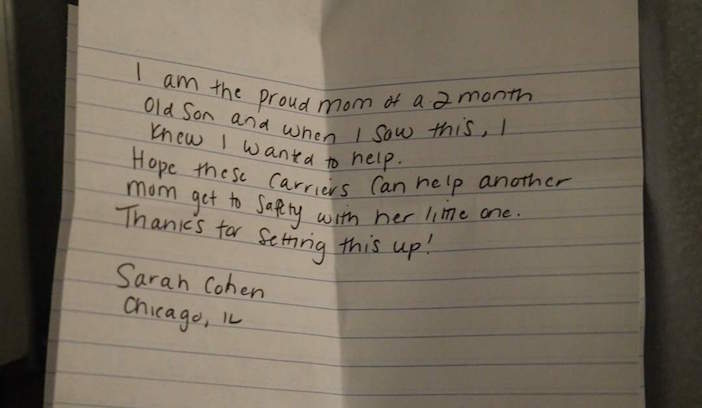 I am the proud mom of a 2 month
old son and when I saw this, I
knew I wanted to help.
Hope these carriers can help another
mom get to safety with her little one.
Thanks for setting this up!
Sarah Cohen
Chicago, IL